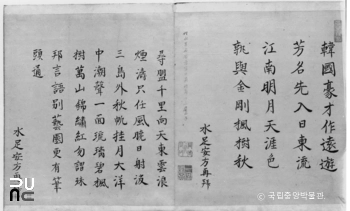 韓國豪才作遠遊
芳名先入日東流
江南明月天涯色
孰與金剛楓樹秋
水足安方再拜
尋盟千里向天東雲浪
煙濤只任風曉日射波
三島外秋帆挂月大洋
中潮聲一面琉璃碧楓
樹萬山錦繡紅勿謂殊
邦言語別藝園更有筆
頭通
水足安方再
ⓒ 국립중앙박물관